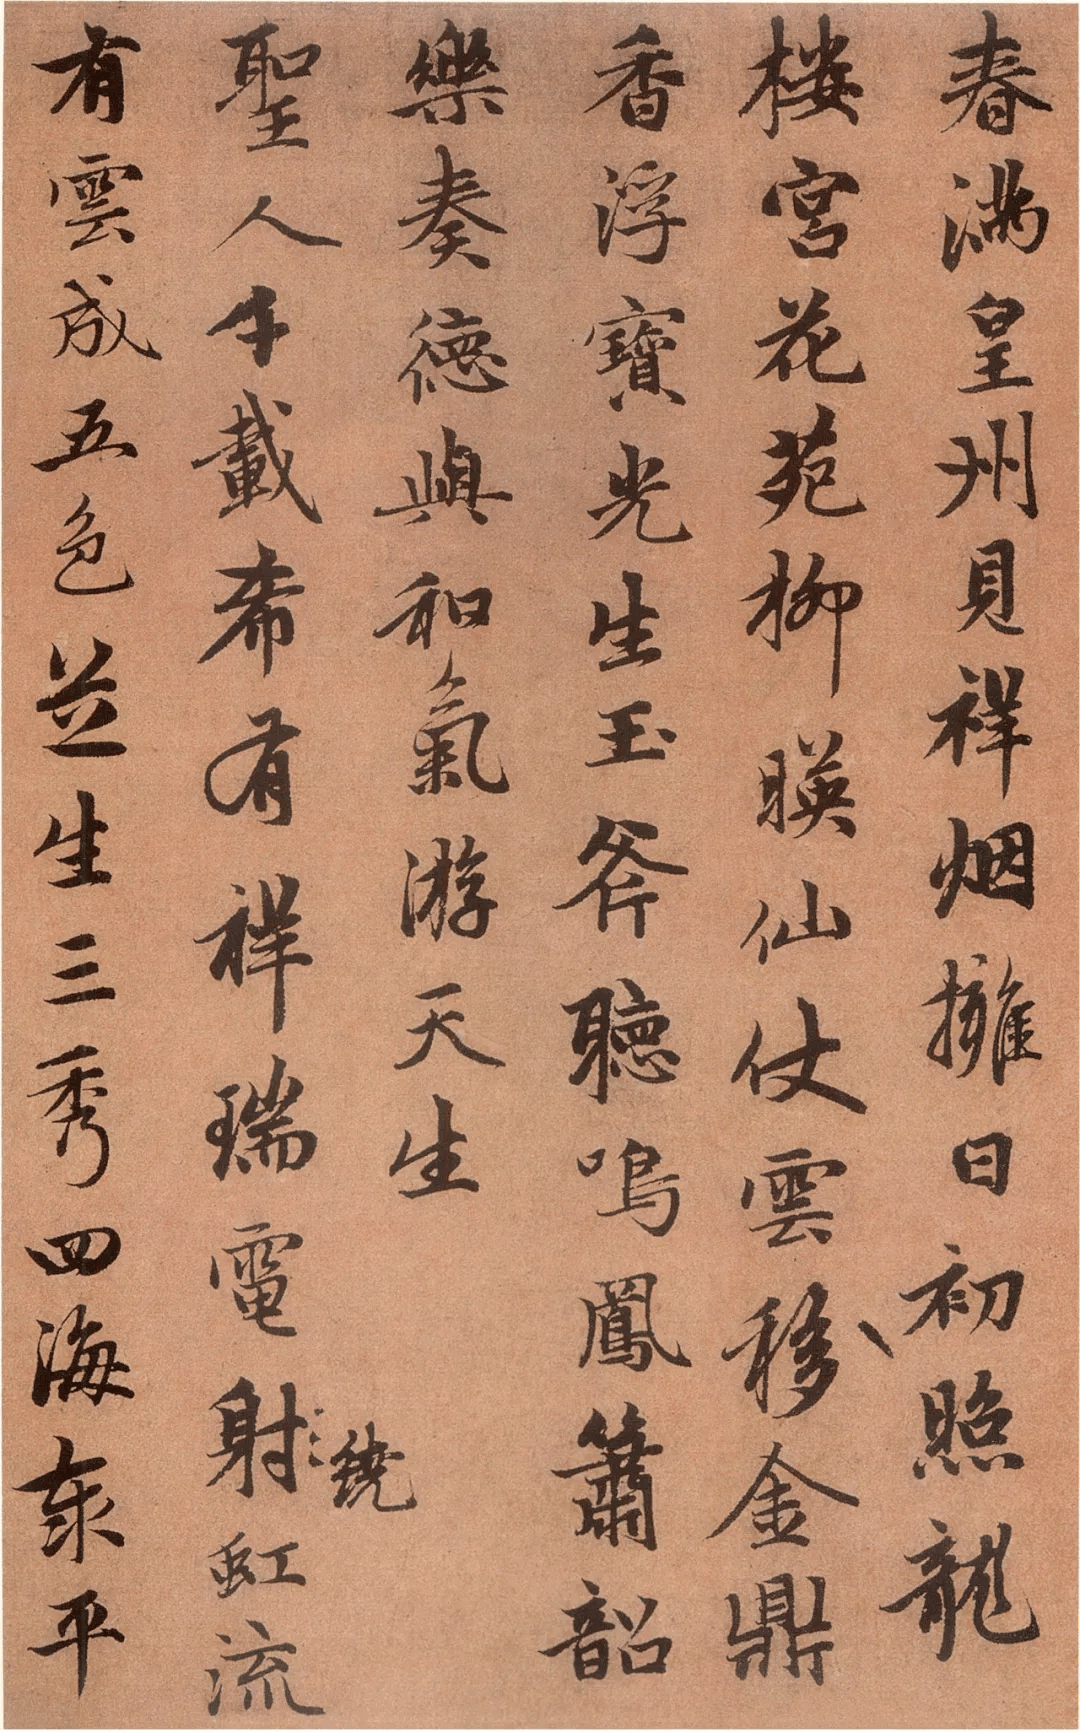 春满皇州見祥烟擁日初照龍
楼宫花苑柳暎仙仗雲移金鼎
香浮寶光生玉斧聽鳴鳳簫韶
樂奏德與和氣游天生
聖人千載希有祥瑞電射虹流
繞
有雲成五色芝生三秀四海泰平